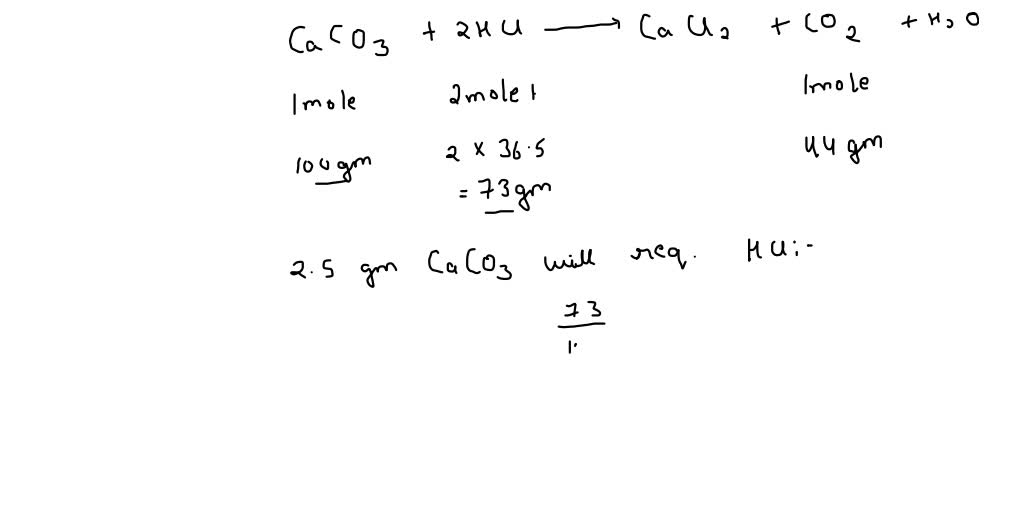 CaCO3 + 2HCl → CaCl2 + CO2 + H2O
1mole 2mole 1mole
100gm 2 × 36.5 44 gm
= 73gm
2.5 gm CaCO3 will req. HCl:-
73
1